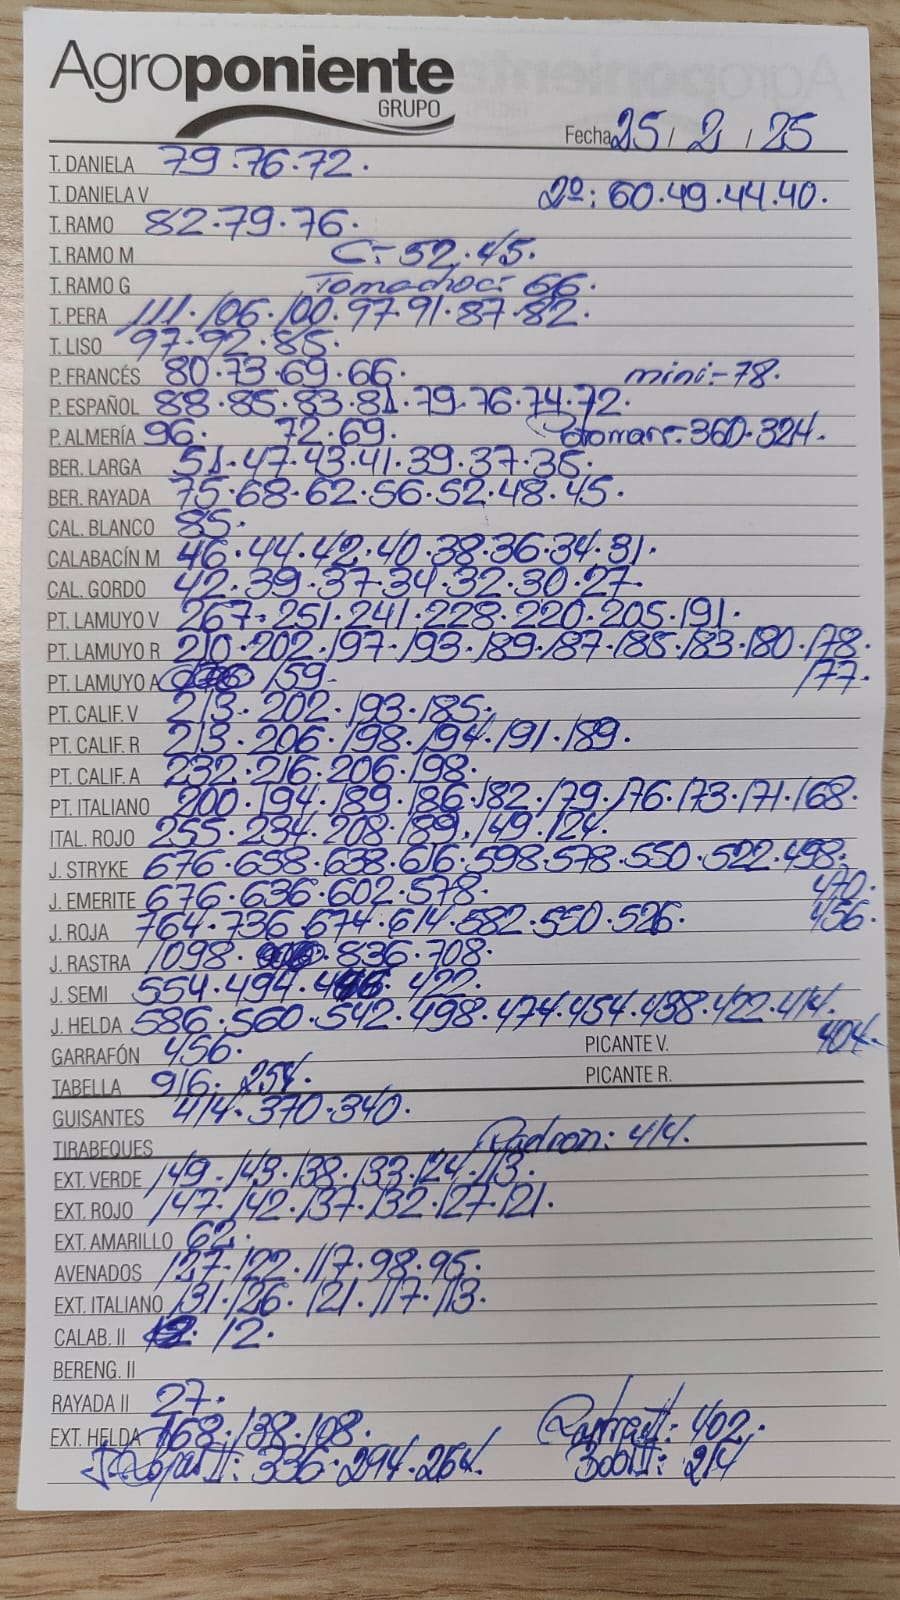 Agroponiente
GRUPO
Fecha 25 / 2 / 25
T. DANIELA 79.76.72.
T. DANIELA V 2º: 60.49.44.40.
T. RAMO 82.79.76.
T. RAMO M C- 52.45.
T. RAMO G Tomachoc: 66.
T. PERA 111.106.100.97.91.87.82.
T. LISO 97.92.85.
P. FRANCÉS 80.73.69.66. mini-78.
P. ESPAÑOL 88.85.83.81.79.76.74.72.
P. ALMERÍA 96. 72.69. 360.324.
BER. LARGA 51.47.43.41.39.37.35.
BER. RAYADA 75.68.62.56.52.48.45.
CAL. BLANCO 85.
CALABACÍN M 46.44.42.40.38.36.34.31.
CAL. GORDO 42.39.37.34.32.30.27.
PT. LAMUYO V 267.251.241.228.220.205.191.
PT. LAMUYO R 210.202.197.193.189.187.185.183.180.178.
PT. LAMUYO A 159. 177.
PT. CALIF. V 213.202.193.185.
PT. CALIF. R 213.206.198.194.191.189.
PT. CALIF. A 232.216.206.198.
PT. ITALIANO 200.194.189.186.182.179.176.173.171.168.
ITAL. ROJO 255.234.208.189.149.124.
J. STRYKE 676.658.638.616.598.578.550.522.498.
J. EMERITE 676.636.602.578. 470.
J. ROJA 764.736.674.614.582.550.526. 456.
J. RASTRA 1098. 836.708.
J. SEMI 554.494. 422.
J. HELDA 586.560.542.498.474.454.438.422.414.
GARRAFÓN 456. PICANTE V. 404.
TABELLA 916. 254. PICANTE R.
GUISANTES 414.370.340.
TIRABEQUES Padron: 414.
EXT. VERDE 149.143.138.133.124.113.
EXT. ROJO 147.142.137.132.127.121.
EXT. AMARILLO 62.
AVENADOS 127.122.117.98.95.
EXT. ITALIANO 131.126.121.117.113.
CALAB. II 12.
BERENG. II
RAYADA II 27.
EXT. HELDA 168.138.108. Rastra II: 402.
J. Roja II: 336.294.264. Bobi II: 214